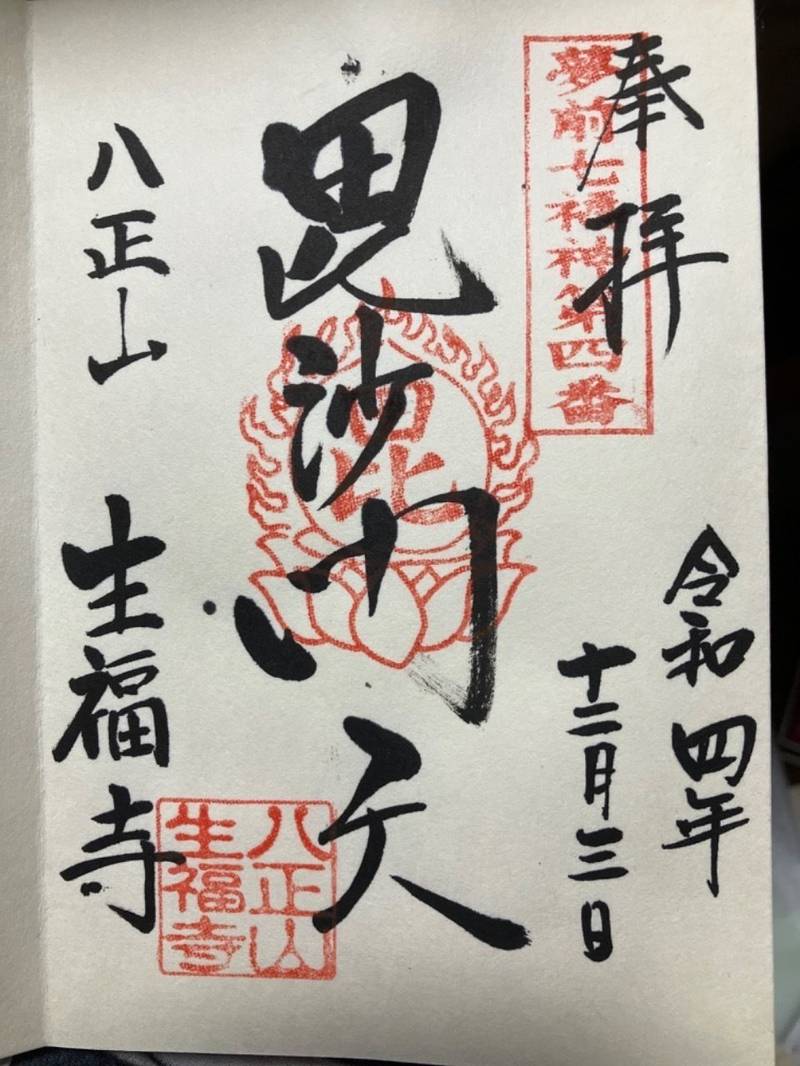 奉拝
夢前七福神第四番
令和四年
十二月三日
毘沙門天
毘
八正山
生福寺
八正山
生福寺